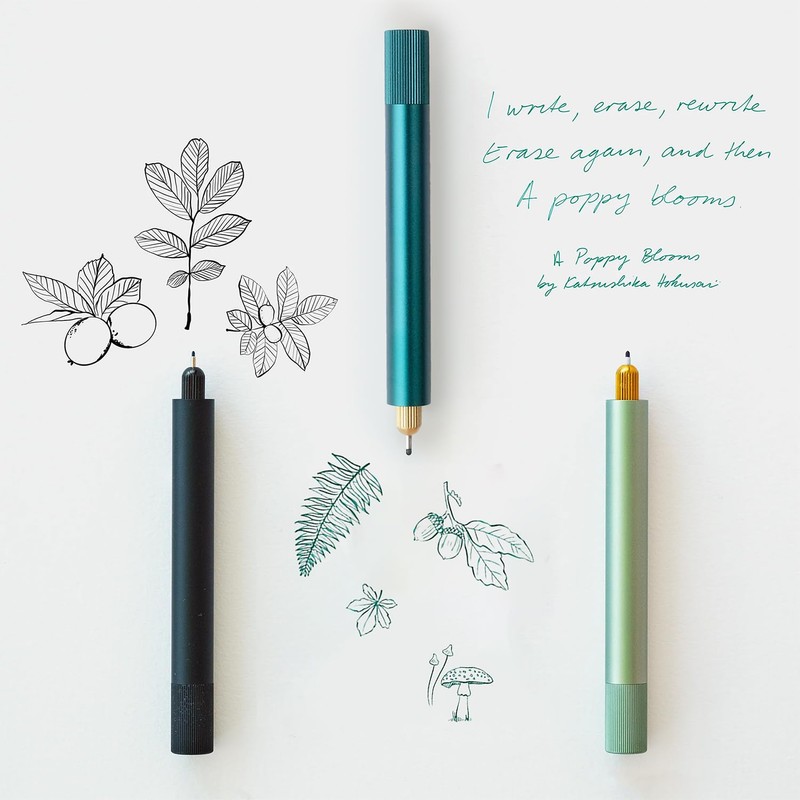 I write, erase, rewrite
Erase again, and then
A poppy blooms.
A Poppy Blooms
by Katsushika Hokusai